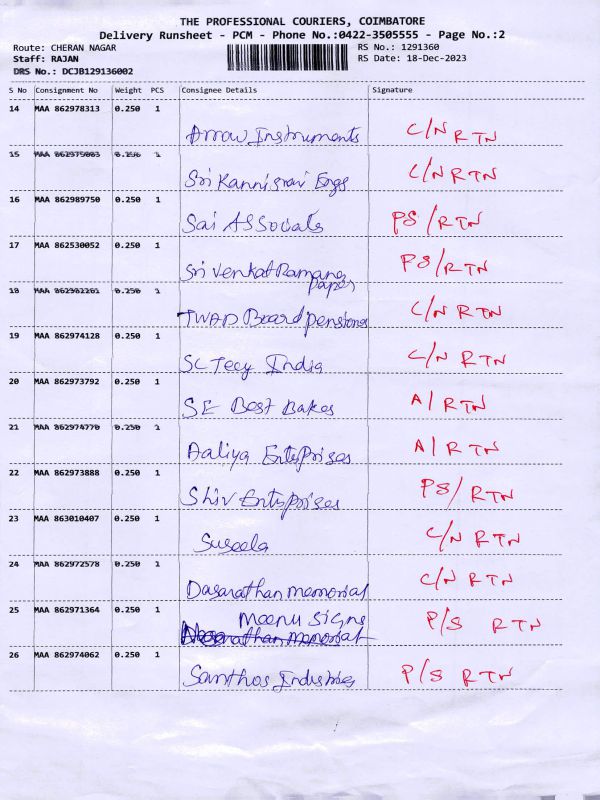 THE PROFESSIONAL COURIERS, COIMBATORE
Delivery Runsheet - PCM - Phone No.:0422-3505555 - Page No.:2
Route: CHERAN NAGAR RS No.: 1291360
Staff: RAJAN RS Date: 18-Dec-2023
DRS No.: DCJB129136002
S No Consignment No Weight PCS Consignee Details Signature
14 MAA 862978313 0.250 1
Arrow Instruments C/N RTN
15 MAA 862975003 0.250 1
Sri Kannisravi Engs C/N RTN
16 MAA 862989750 0.250 1
Sai ASSociats PS/RTN
17 MAA 862530052 0.250 1
Sri Venkat Ramana PS/RTN
paper
18 MAA 862982261 0.250 1
TWAD Board pensioner C/N RTN
19 MAA 862974128 0.250 1
SC Tecy India C/N RTN
20 MAA 862973792 0.250 1
SE Best Bakes A/RTN
21 MAA 862974770 0.250 1
Aaliya Enterprises A/RTN
22 MAA 862973888 0.250 1
Shiv Enterprises PS/RTN
23 MAA 863010407 0.250 1
Suseela C/N RTN
24 MAA 862972578 0.250 1
Dasarathan memorial C/N RTN
25 MAA 862971364 0.250 1
Meenu Signs P/S RTN
26 MAA 862974062 0.250 1
Santhos Industries P/S RTN